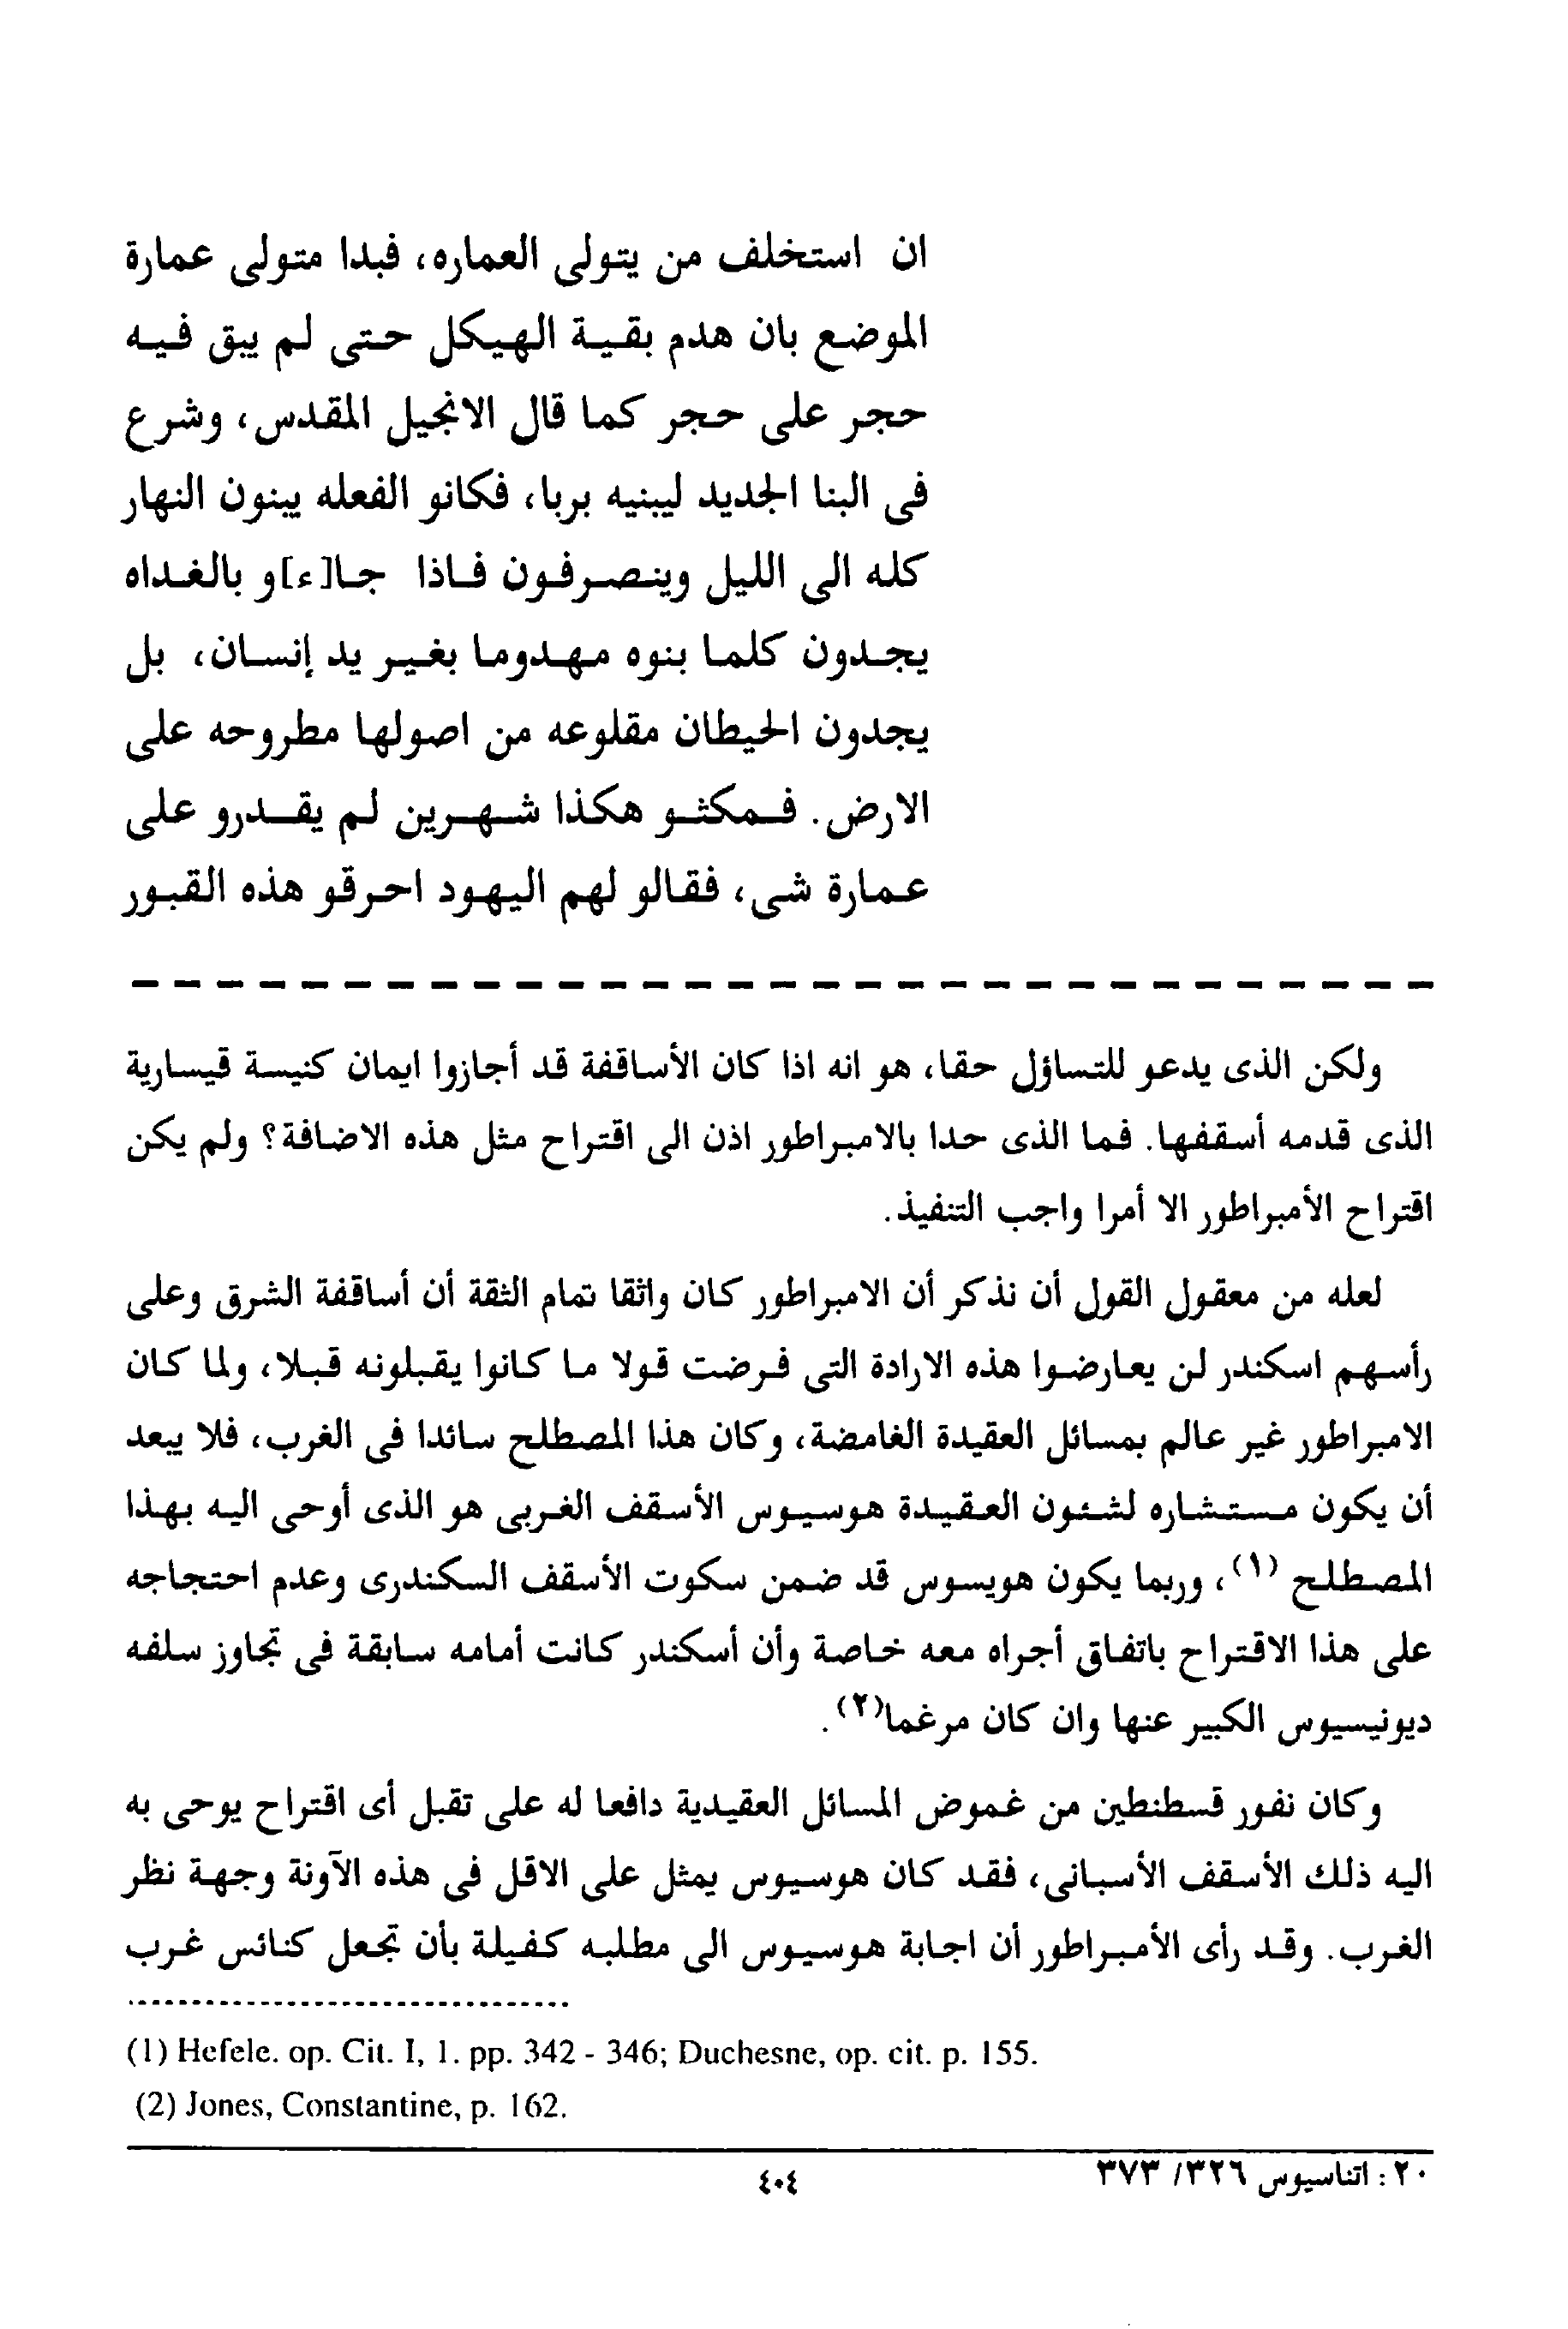 ان استخلف من يتولى العماره، فبدا متولى عمارة
الموضع بان هدم بقية الهيكل حتى لم يبق فيه
حجر على حجر كما قال الانجيل المقدس، وشرع
فى البنا الجديد ليبنيه بربا، فكانو الفعله يبنون النهار
كله الى الليل وينصرفون فاذا جا[ء]و بالغداه
يجدون كلما بنوه مهدوما بغير يد إنسان، بل
يجدون الحيطان مقلوعه من اصولها مطروحه على
الارض. فمكثو هكذا شهرين لم يقدرو على
عمارة شى، فقالو لهم اليهود احرقو هذه القبور
ولكن الذى يدعو للتساؤل حقا، هو انه اذا كان الأساقفة قد أجازوا ايمان كنيسة قيسارية
الذى قدمه أسقفها. فما الذى حدا بالامبراطور اذن الى اقتراح مثل هذه الاضافة؟ ولم يكن
اقتراح الأمبراطور الا أمرا واجب التنفيذ.
لعله من معقول القول أن نذكر أن الامبراطور كان واثقا تمام الثقة أن أساقفة الشرق وعلى
رأسهم اسكندر لن يعارضوا هذه الارادة التى فرضت قولا ما كانوا يقبلونه قبلا، ولما كان
الامبراطور غير عالم بمسائل العقيدة الغامضة، وكان هذا المصطلح سائدا فى الغرب، فلا يبعد
أن يكون مستشاره لشئون العقيدة هوسيوس الأسقف الغربى هو الذى أوحى اليه بهذا
المصطلح (١)، وربما يكون هويسوس قد ضمن سكوت الأسقف السكندرى وعدم احتجاجه
على هذا الاقتراح باتفاق أجراه معه خاصة وأن أسكندر كانت أمامه سابقة فى تجاوز سلفه
ديونيسيوس الكبير عنها وان كان مرغما(٢).
وكان نفور قسطنطين من غموض المسائل العقيدية دافعا له على تقبل أى اقتراح يوحى به
اليه ذلك الأسقف الأسبانى، فقد كان هوسيوس يمثل على الاقل فى هذه الآونة وجهة نظر
الغرب. وقد رأى الأمبراطور أن اجابة هوسيوس الى مطلبه كفيلة بأن تجعل كنائس غرب
(1) Hefele. op. Cit. I, 1. pp. 342 - 346; Duchesne, op. cit. p. 155.
(2) Jones, Constantine, p. 162.
٢٠ : اتناسيوس ٣٢٦/ ٣٧٣
٤٠٤